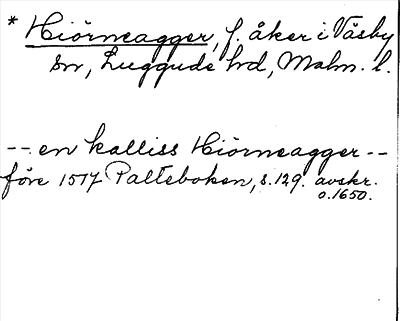 * Hiörneagger, f. åker i Väsby
sn, Luggude hd, Malm. l.
-- en kalliss Hiörneagger --
före 1517 Palteboken, s. 129. avskr.
o. 1650.